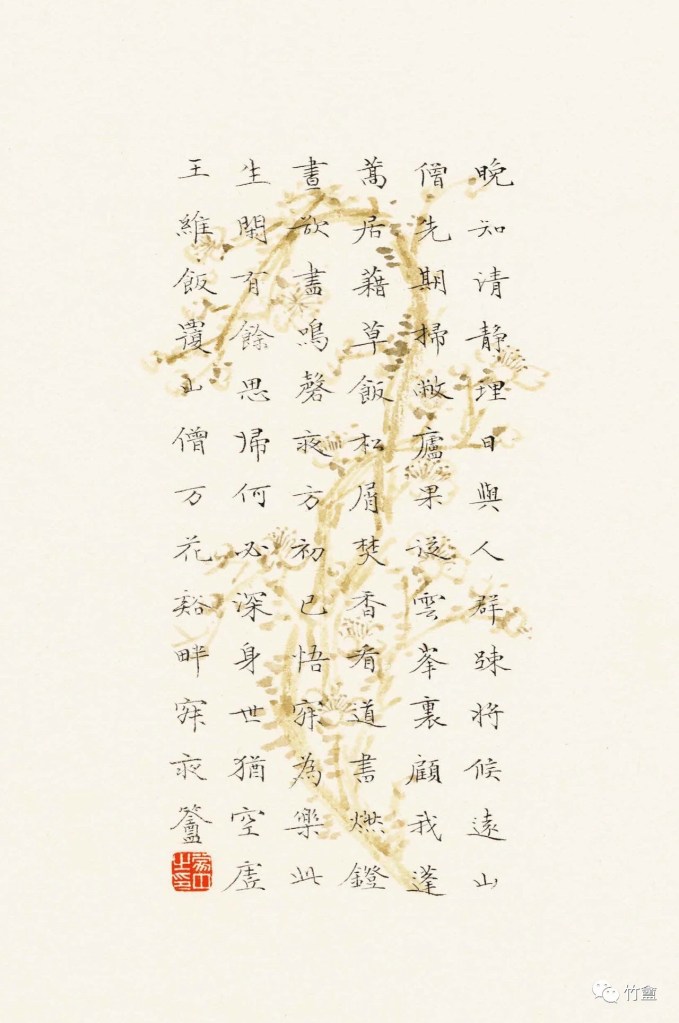 晚知清静理日與人群疎将候遠山
僧先期掃敝廬果從雲峯裏顧我蓬
蒿居藉草飯松屑焚香看道書燃鐙
晝欲盡鳴磬夜方初已悟寂為樂此
生閑有餘思歸何必深身世猶空虚
王維飯覆山僧万花谿畔寂夜竹盦
竹盦